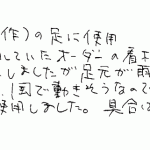 作)の足に使用
していたオーダーの看板
しましたが足元が雨
1国で動きそうなので
使用しました。具合は